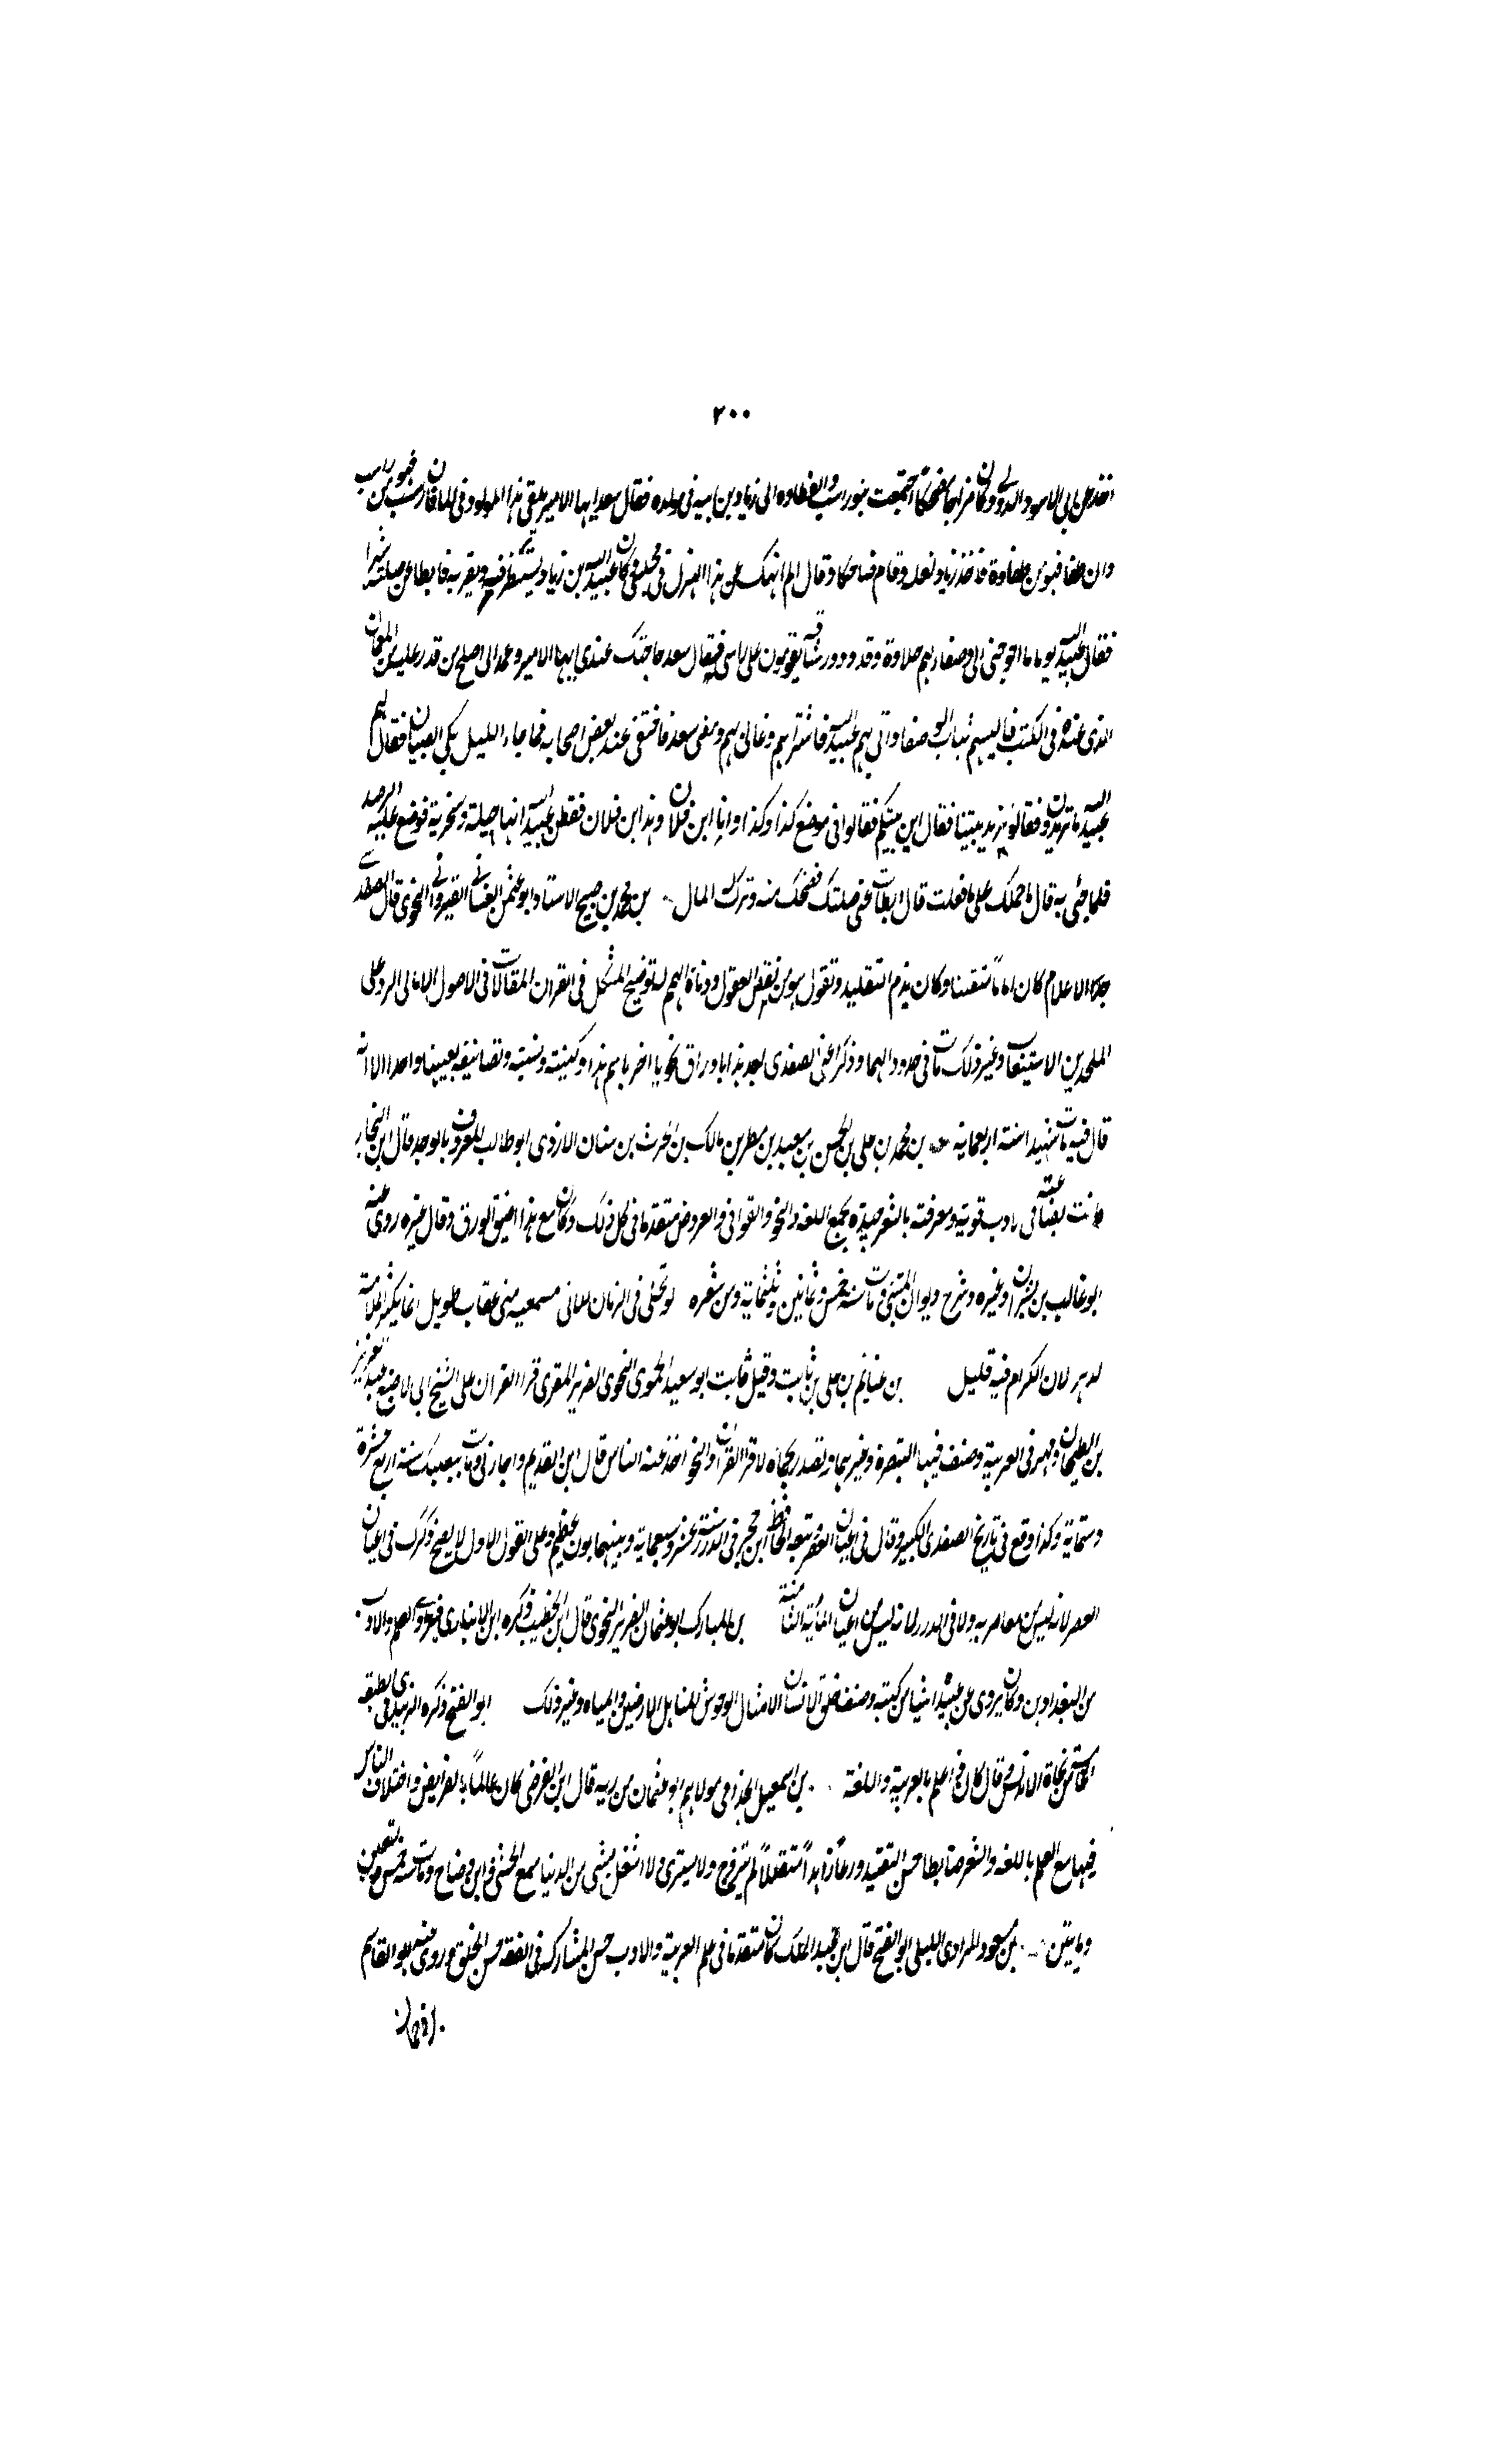 ٢٠٠
اخذ عن ابي الاسود الدولي وكان مزاحا مضحكا اجتمعت بنو راسب والطفاوة الى زياد بن ابيه في مولده فقال سعد ايها الامير يلقى هذا المولود في الماء فان رسب فمن راسب
وان طفا فهو من طفاوة فاخذ زياد نعله وقام ضاحكا وقال الم انهك عن هذا الهزل في مجلسي وكان عبيد الله بن زياد يستظرفه ويقربه فابطا عن صلته شهرا
فقال عبيد الله يوما ما احوجني الى وصفاء بهم حلاوة وقدود ورشاقة يقومون على راسي فقال سعد حاجتك عندي ايها الامير وعمد الى اصلح من قدر عليه من الغلمان
الذي عنده في الكتب فالبسهم ثياب الوصفا واتى بهم عبيد الله فاشتراهم وغالى بهم ومضى سعد فاختفى عند بعض اصحابه فلما جاء الليل بكى الصبيان فقال لهم
عبيد الله ما تريدون فقالوا نريد بيتنا فقال اين بيتكم فقالوا في موضع كذا وكذا وانا ابن فلان وهذا ابن فلان ففطن عبيد الله انها حيلة وسخرية فوضع عليه الرصد
فلما جئ به قال ما حملك على ما فعلت قال ابطات عني صلتك فضحك منه وترك له المال بن محمد بن صبيح الاستاذ ابو عثمن الغساني القيرواني النحوي قال الصفدي
احد الاعلام كان اماما متفننا وكان يذم التقليد وتقول هو من نقص العقول ودناة الهمم له توضيح المشكل في القران المقالات في الاصول الامالي الرد على
الملحدين الاستيعاب وغير ذلك مات في حدود وذكر اعني الصفدي بعد هذا باوراق نحويا اخر باسم هذا وكنيته ونسبته وتصانيفه بعينها واحدا الا انه
قال فيه مات شهيدا سنة اربعماية بن محمد بن علي بن الحسن بن سعيد بن مطر بن مالك بن الحرث بن سنان الازدي ابو طالب المعروف بالوحيد قال ابن النجار
كانت بضاعته في الادب قوية ومعرفته بالشعر جيدة يجمع اللغة والنحو والقوافي والعروض متقدما في كل ذلك وكان مع هذا ضيق الورق وقال غيره روى عنه
ابو غالب بن بشران وغيره وشرح ديوان المتنبي ومات سنة خمس وثمانين وثلثماية ومن شعره لو تجلى في الزمان لعاني مسمعيه مني عتاب طويل انما يكثر الملامة
لدهر لان الكرام فيه قليل بن غنايم بن علي بن ثابت وقيل ثابت ابو سعيد الحموي النحوي الضرير المقري قرا القران على الشيخ ابي الاصبغ عبد العزيز
بن الطحان ومهر في العربية وصنف فيها التبصرة وغيرها وتصدر بحماه لاقرا القران والنحو اخذ عنه الناس قال ابن العديم واجاز لي ومات ببعلبك سنة اربع عشرة
وستماية وكذا وقع في تاريخ الصفدي الكبير وقال في اعيان العصر وتبعه الحافظ ابن حجر في الدرر سنة عشر وسبعماية وبينهما بون عظيم وعلى القول الاول لا يصح ذكرك في اعيان
العصر لانه ليس من معاصريه ولا في الدرر لانه ليس من اعيان المائة الثامنة بن المبارك ابو عثمان الضرير النحوي قال الخطيب ذكره ابن الانباري فيمن العلم والادب
من البغداديين وكان يروى عن عبيدة اشيا من كتبه وصنف خلق الانسان الامثال الوحوش المناهل الارضين والمياه وغير ذلك ابو الفتح ذكره الزبيدي في الطبقة
الخامسة من نحاة الاندلس وقال كان في علم بالعربية واللغة بن اسمعيل الجذامي مولاهم ابو عثمان من ريه قال ابن الفرضي كان عالما بالفرايض واختلاف الناس
فيها مع العلم باللغة والشعر ضابطا حسن التقييد ورعا زاهدا متقللا لم يتزوج ولا تسرى ولا اشتغل بشي من الدنيا سمع الخشني وابن وضاح ومات سنة خمس وتسعين
ومايتين بن مسعود المرادي الليلي ابو الفتح قال ابن عبد الملك كان متقدما في علم العربية والادب حسن المشاركة في الفقه حسن الخلق وروى عنه ابو القاسم